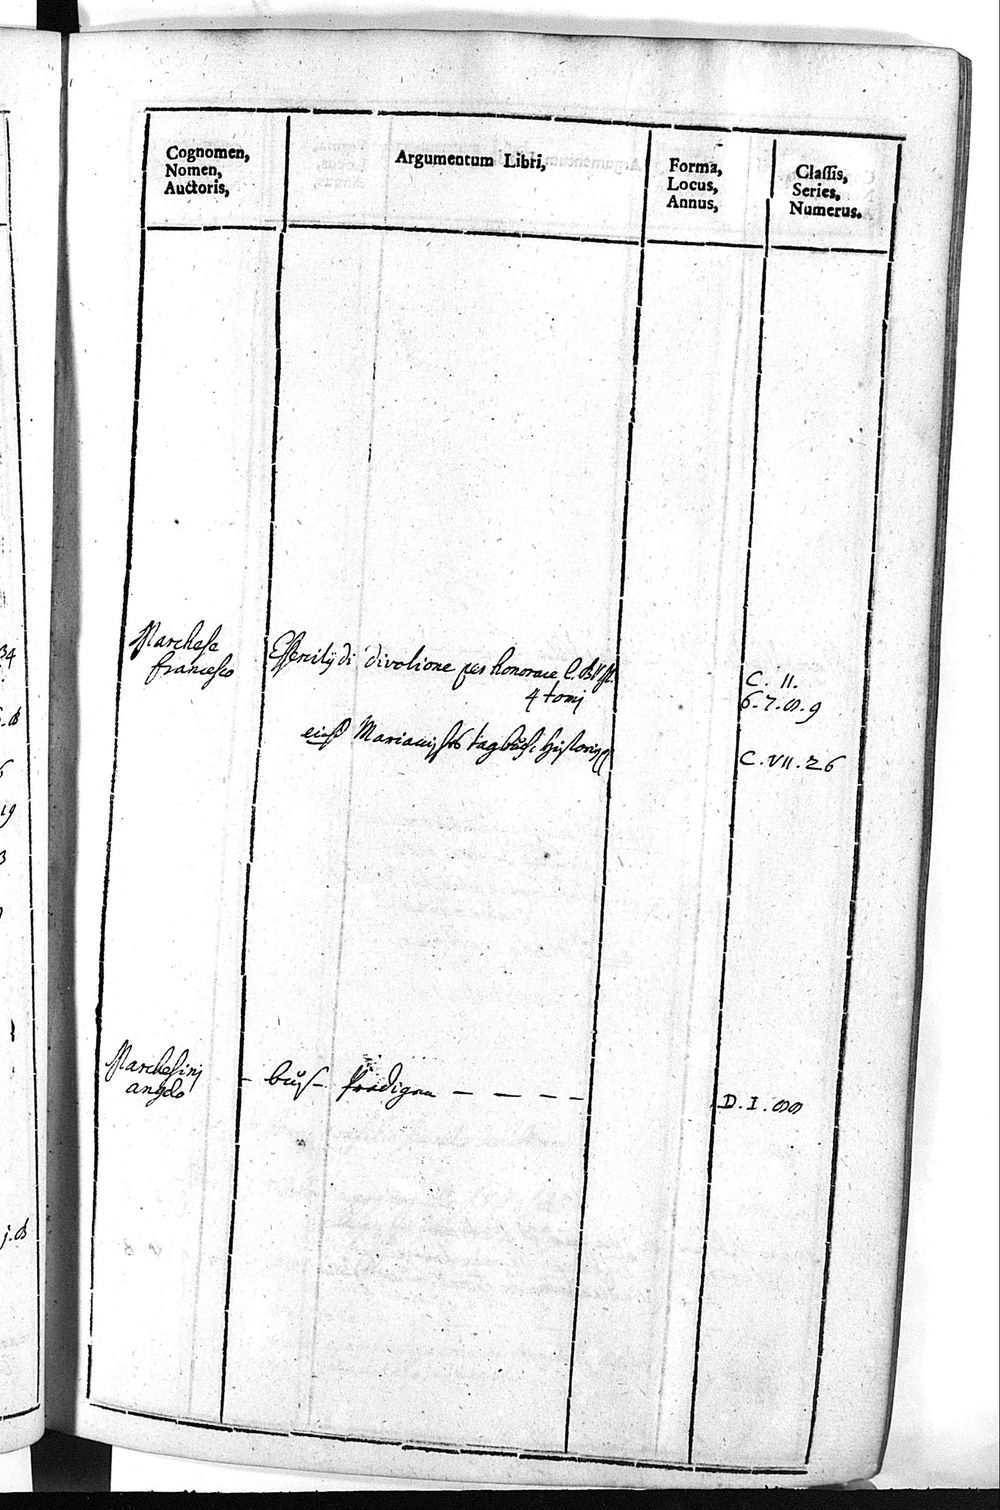 Cognomen,
Nomen,
Auctoris,
Argumentum Libri,
Forma,
Locus,
Annus,
Classis,
Series,
Numerus.
Marchese
francesco
Essercitij di divotione per honorare
4 tomi
C. II.
6.7.8.9
Marianisches tagbuch
C. VII. 26
Marchesinj
angelo
- buß-predigen - - - -
D. I. 88